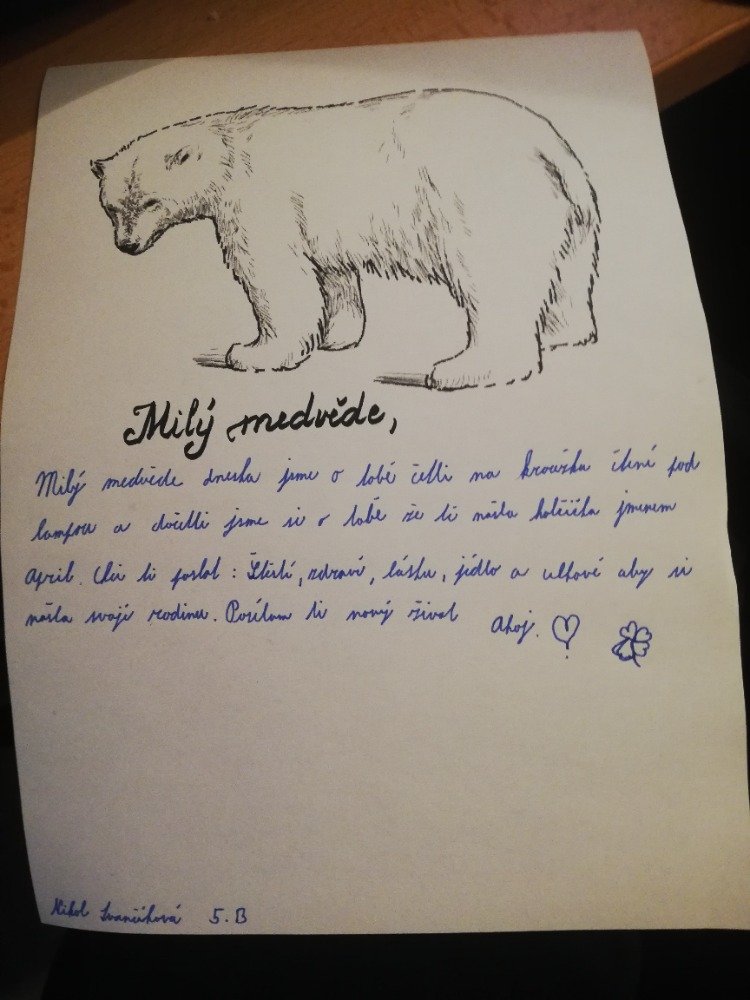 Milý medvěde,
Milý medvěde dneska jsme o tobě četli na kroužku čtení pod
lampou a dočetli jsme si o tobě že tě našla holčička jmenem
April. Chci ti poslat: Štěstí, zdraví, lásku, jídlo a aby si
našla svojí rodinu. Posílam ti nový život Ahoj.
Nikol 5.B